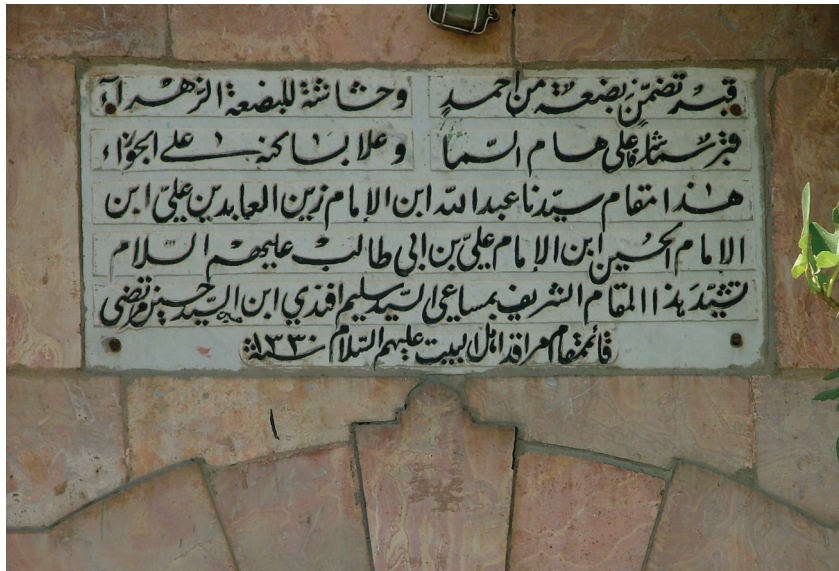 قبر تضمّن بضعة من احمدٍ وحشاشة للبضعة الزهراء
قبر سما شرفًا على هام السما وعلا بساكنه على الجوزاء
هذا مقام سيّدنا عبد الله ابن الامام زين العابدين عليّ ابن
الامام الحسين ابن الامام عليّ بن ابي طالب عليهم السلام
تشيّد هذا المقام الشريف بمساعي السيّد سليم افندي ابن السيّد حسين مرتضى
قائمقام مراقد اهل البيت عليهم السّلام سنة ١٣٣٠